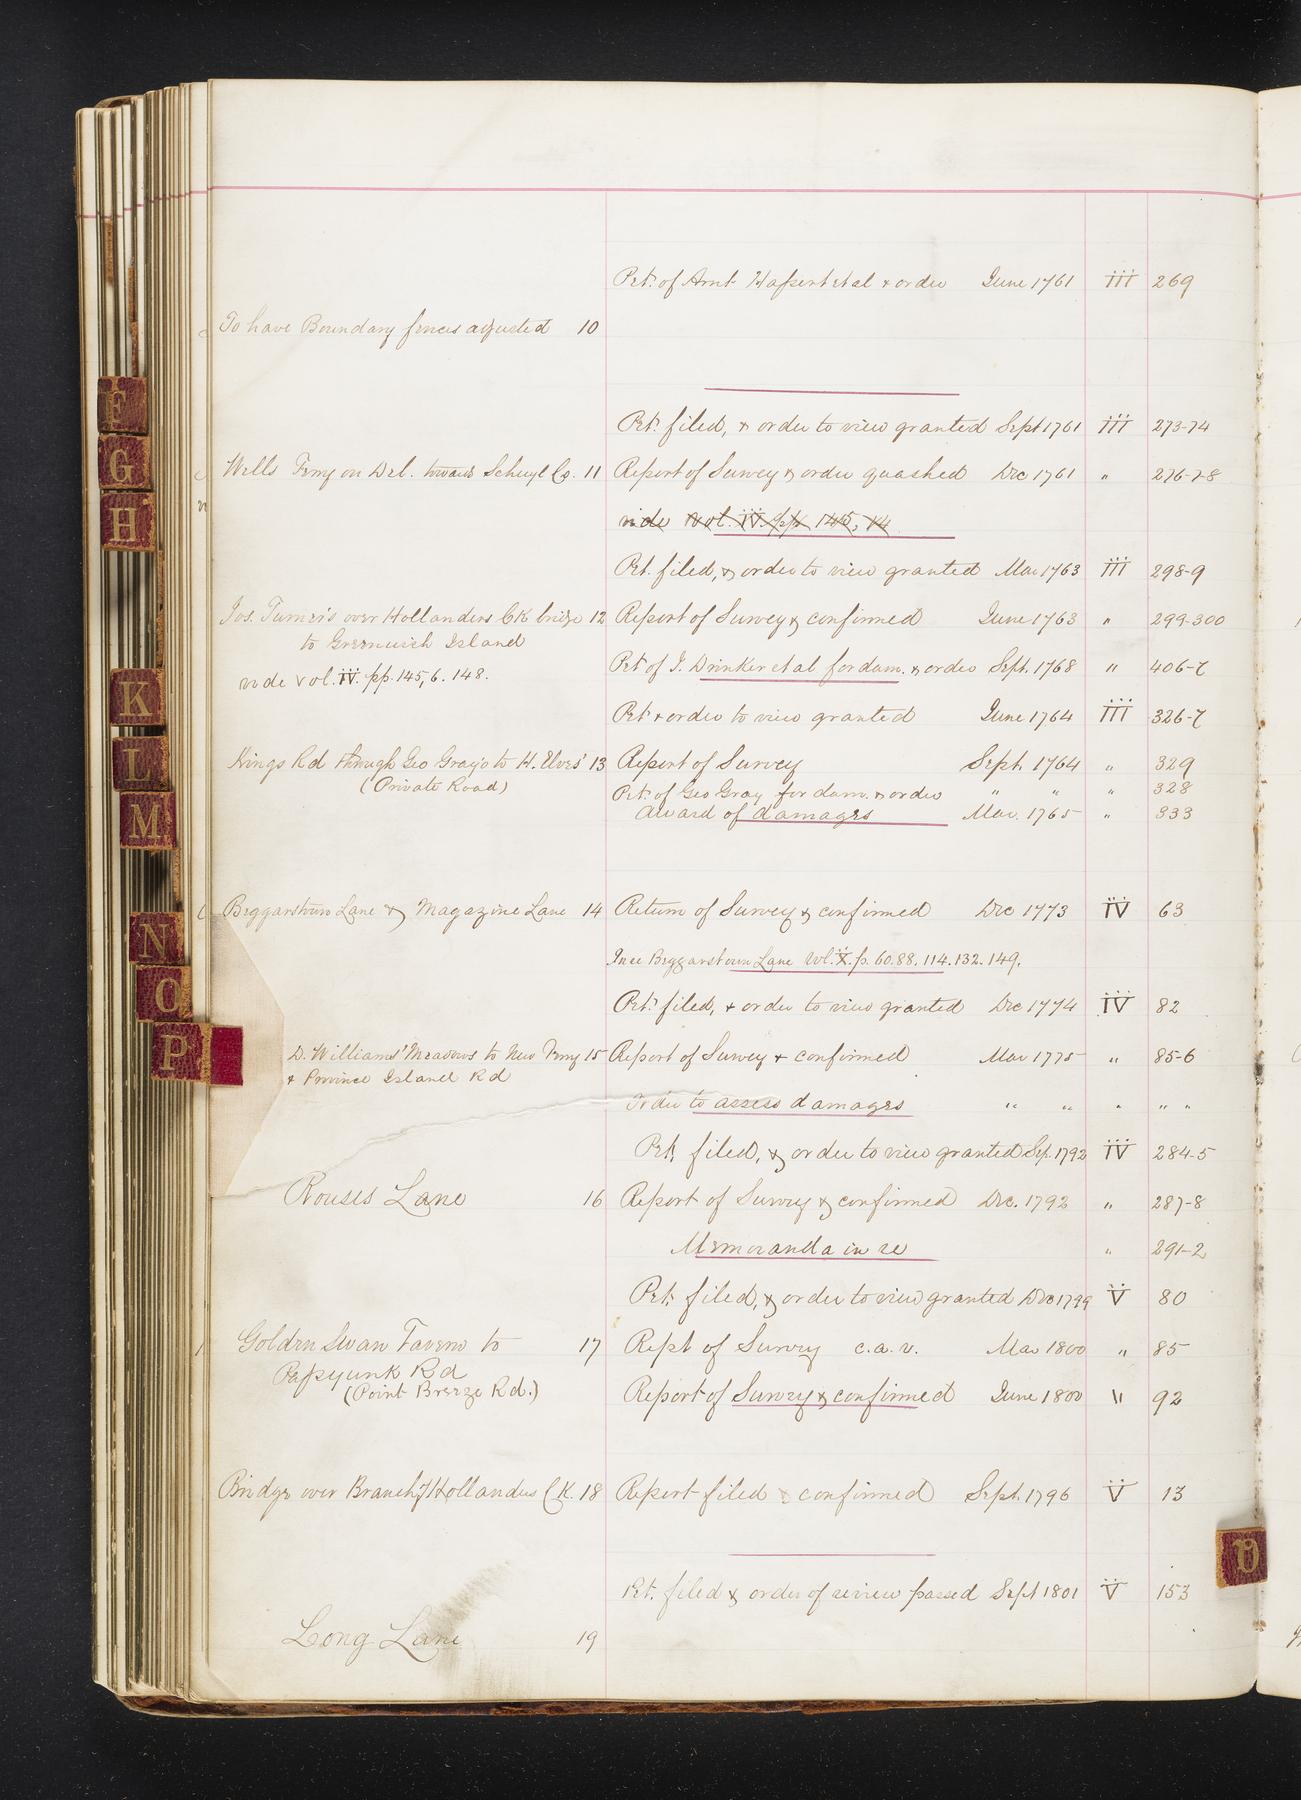 Pet. of Arnt Hassert et al & order June 1761 III 269
To have Boundary fences adjusted 10
Pet. filed, & order to view granted Sept 1761 III 273-74
Wells Ferry on Del. towards Schuyl Co. 11 Report of Survey & order quashed Dec 1761 " 276-7-8
vide Vol. IV. pp 145, 14
Pet. filed, & order to view granted Mar 1763 III 298-9
Jos. Turner's over Hollanders CK bridge 12 Report of Survey & confirmed June 1763 " 299-300
to Greenwich Island
Pet of J. Drinker et al for dam. & order Sept. 1768 " 406-7
vide vol. IV. pp. 145, 6. 148.
Pet & order to view granted June 1764 III 326-7
Kings Rd through Geo Gray's to H. Elves' 13 Report of Survey Sept. 1764 " 329
(Private Road)
Pet. of Geo Gray for dam. & order " " " 328
award of damages Mar. 1765 " 333
Beggarstown Lane & Magazine Lane 14 Return of Survey & confirmed Dec 1773 IV 63
In re Beggarstown Lane Vol. X. p. 60. 88. 114. 132. 149.
Pet. filed, & order to view granted Dec 1774 IV 82
D. Williams' Meadows to New Ferry 15 Report of Survey & confirmed Mar 1775 " 85-6
& Province Island Rd
Order to assess damages " " " " "
Pet. filed, & order to view granted Sep. 1792 IV 284-5
Rouses Lane 16 Report of Survey & confirmed Dec. 1792 " 287-8
Memoranda in re " 291-2
Pet. filed, & order to view granted Dec 1799 V 80
Golden Swan Tavern to 17 Rept of Survey c.a.v. Mar 1800 " 85
Passyunk Rd
(Point Breeze Rd.)
Report of Survey & confirmed June 1800 " 92
Bridge over Branch of Hollanders CK. 18 Report filed & confirmed Sept. 1796 V 13
Pet. filed & order of review passed Sept 1801 V 153
Long Lane 19
F
G
H
K
L
M
N
O
P